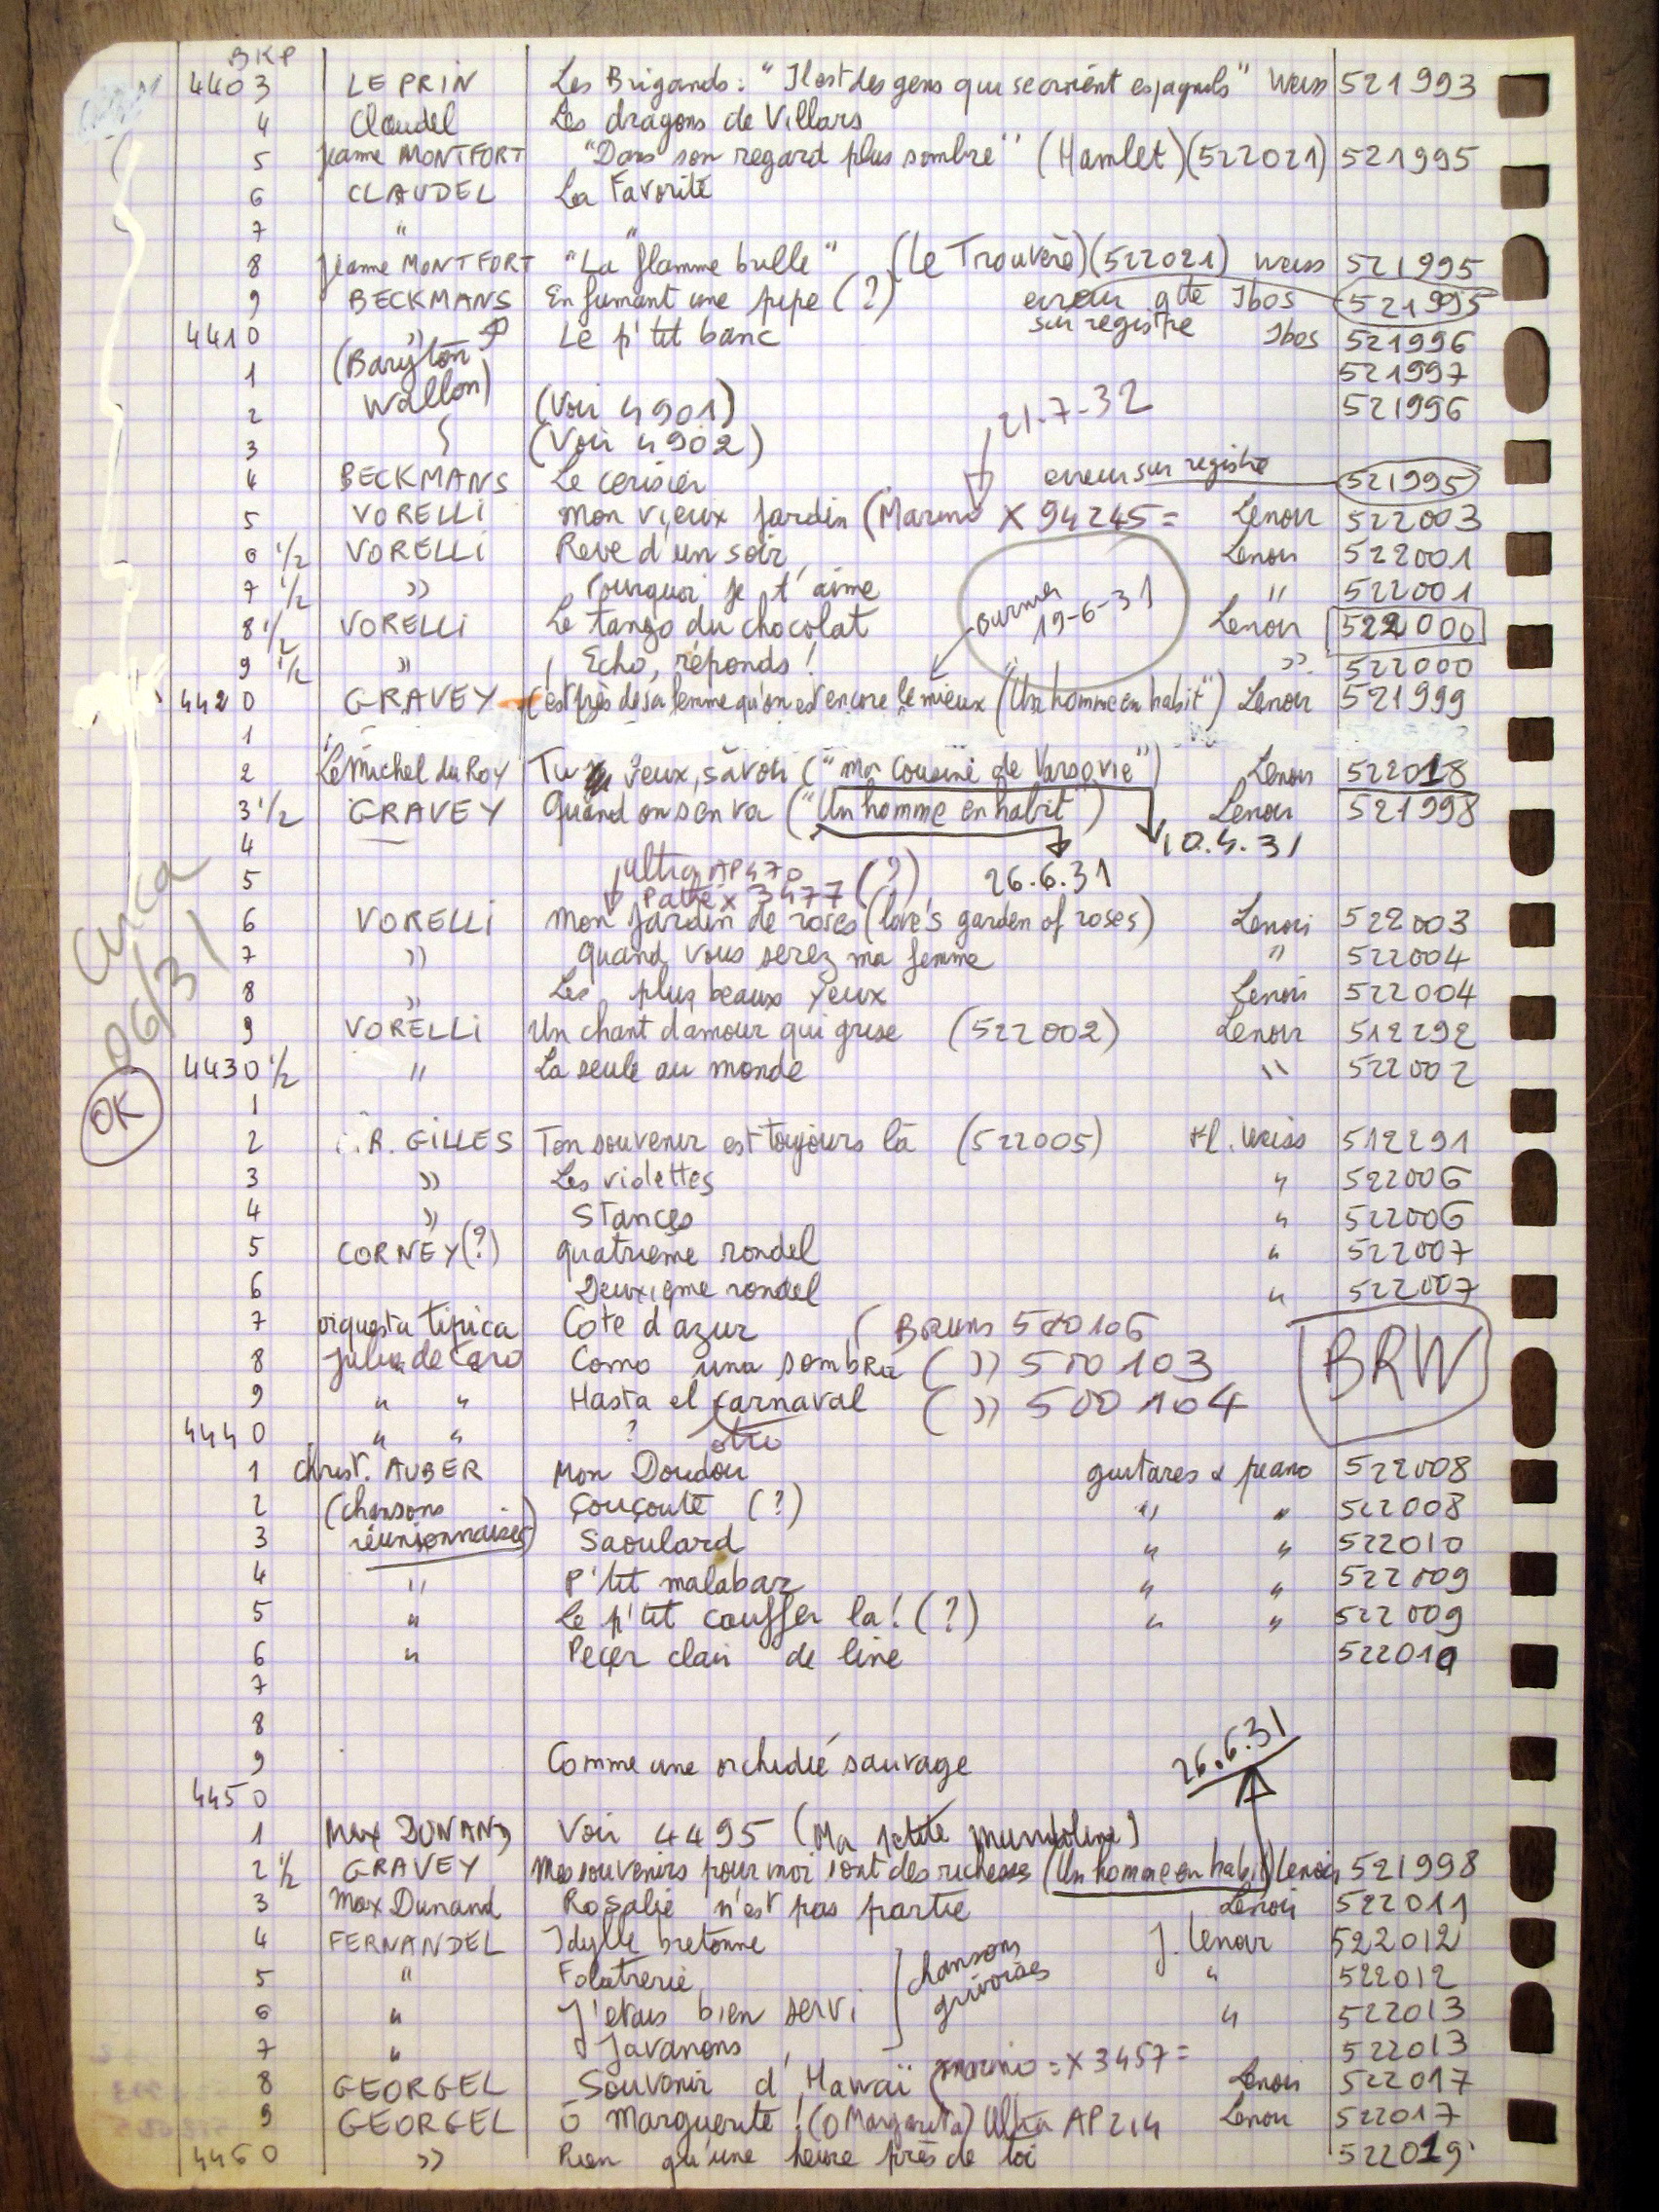 BKP
4403 LE PRIN Les Brigands : "Il est des gens qui se croient espagnols" Weiss 521993
4 Claudel Les dragons de Villars
5 Jeanne MONTFORT "Dans son regard plus sombre" (Hamlet) (522021) 521995
6 CLAUDEL La Favorite
7 " "
8 Jeanne MONTFORT "La flamme brille" (Le Trouvère) (522021) Weiss 521995
9 BECKMANS En fumant une pipe (?) erreur qte Ibos 521995
sur registre
4410 " Le p'tit banc Ibos 521996
(Baryton
1 521997
Wallon)
2 (Voir 4901) 521996
21.7-32
3 (Voir 4902)
4 BECKMANS Le cerisier erreur sur registre 521995
5 VORELLI Mon vieux jardin (Marino X 94245 = Lenoir 522003
6 1/2 VORELLI Reve d'un soir Lenoir 522001
7 1/2 " Pourquoi je t'aime " 522001
19-6-31
8 1/2 VORELLI Le tango du chocolat Lenoir 522000
9 1/2 " Echo, réponds ! " 522000
4420 GRAVEY C'est près de sa femme qu'on est encore le mieux ("Un homme en habit") Lenoir 521999
1
2 Le Michel du Roy Tu veux, savoir ("ma cousine de Varsovie") Lenoir 522018
3 1/2 GRAVEY Quand on s'en va ("Un homme en habit") Lenoir 521998
4 10.4.31
5 Ultra AP470 (?) 26.6.31
Pathé x 3477
6 VORELLI Mon jardin de roses (love's garden of roses) Lenoir 522003
7 " Quand vous serez ma femme " 522004
8 " Les plus beaux yeux Lenoir 522004
9 VORELLI Un chant d'amour qui grise (522002) Lenoir 512292
circa
06/31
4430 1/2 " La seule au monde " 522002
1
OK
2 R. GILLES Ton souvenir est toujours là (522005) Weiss 512291
3 " Les violettes " 522006
4 " Stances " 522006
5 CORNEY (?) Quatrieme rondel " 522007
6 Deuxieme rondel " 522007
7 orquesta tipica Cote d'azur (Bruns 500106
8 Julio de Caro Como una sombra ( " 500103
BRW
9 " " Hasta el carnaval ( " 500104
otro
4440 " " ?
1 Christ. AUBER Mon Doudou guitares & piano 522008
2 (chansons Couçouté (?) " " 522008
3 réunionnaises) Saoulard " " 522010
4 " P'tit malabar " " 522009
5 " Le p'tit couffer la ! (?) " " 522009
6 " Peçer clair de line 522010
7
8
9 Comme une orchidée sauvage 26.6.31
4450
1 Max DUNAND Voir 4495 (Ma petite mandoline)
2 1/2 GRAVEY Mes souvenirs pour moi sont des richesses (Un homme en habit) Lenoir 521998
3 Max Dunand Rosalie n'est pas partie Lenoir 522011
4 FERNANDEL Idylle bretonne J. Lenoir 522012
chansons
grivoises
5 " Folatrerie " 522012
6 " J'etais bien servi " 522013
7 " Javanons 522013
8 GEORGEL Souvenir d'Hawaï (marino = X 3457 = Lenoir 522017
9 GEORGEL O Marguerite ! (O Margarita) Ultra AP214 Lenoir 522017
4460 " Rien qu'une heure près de toi 522019